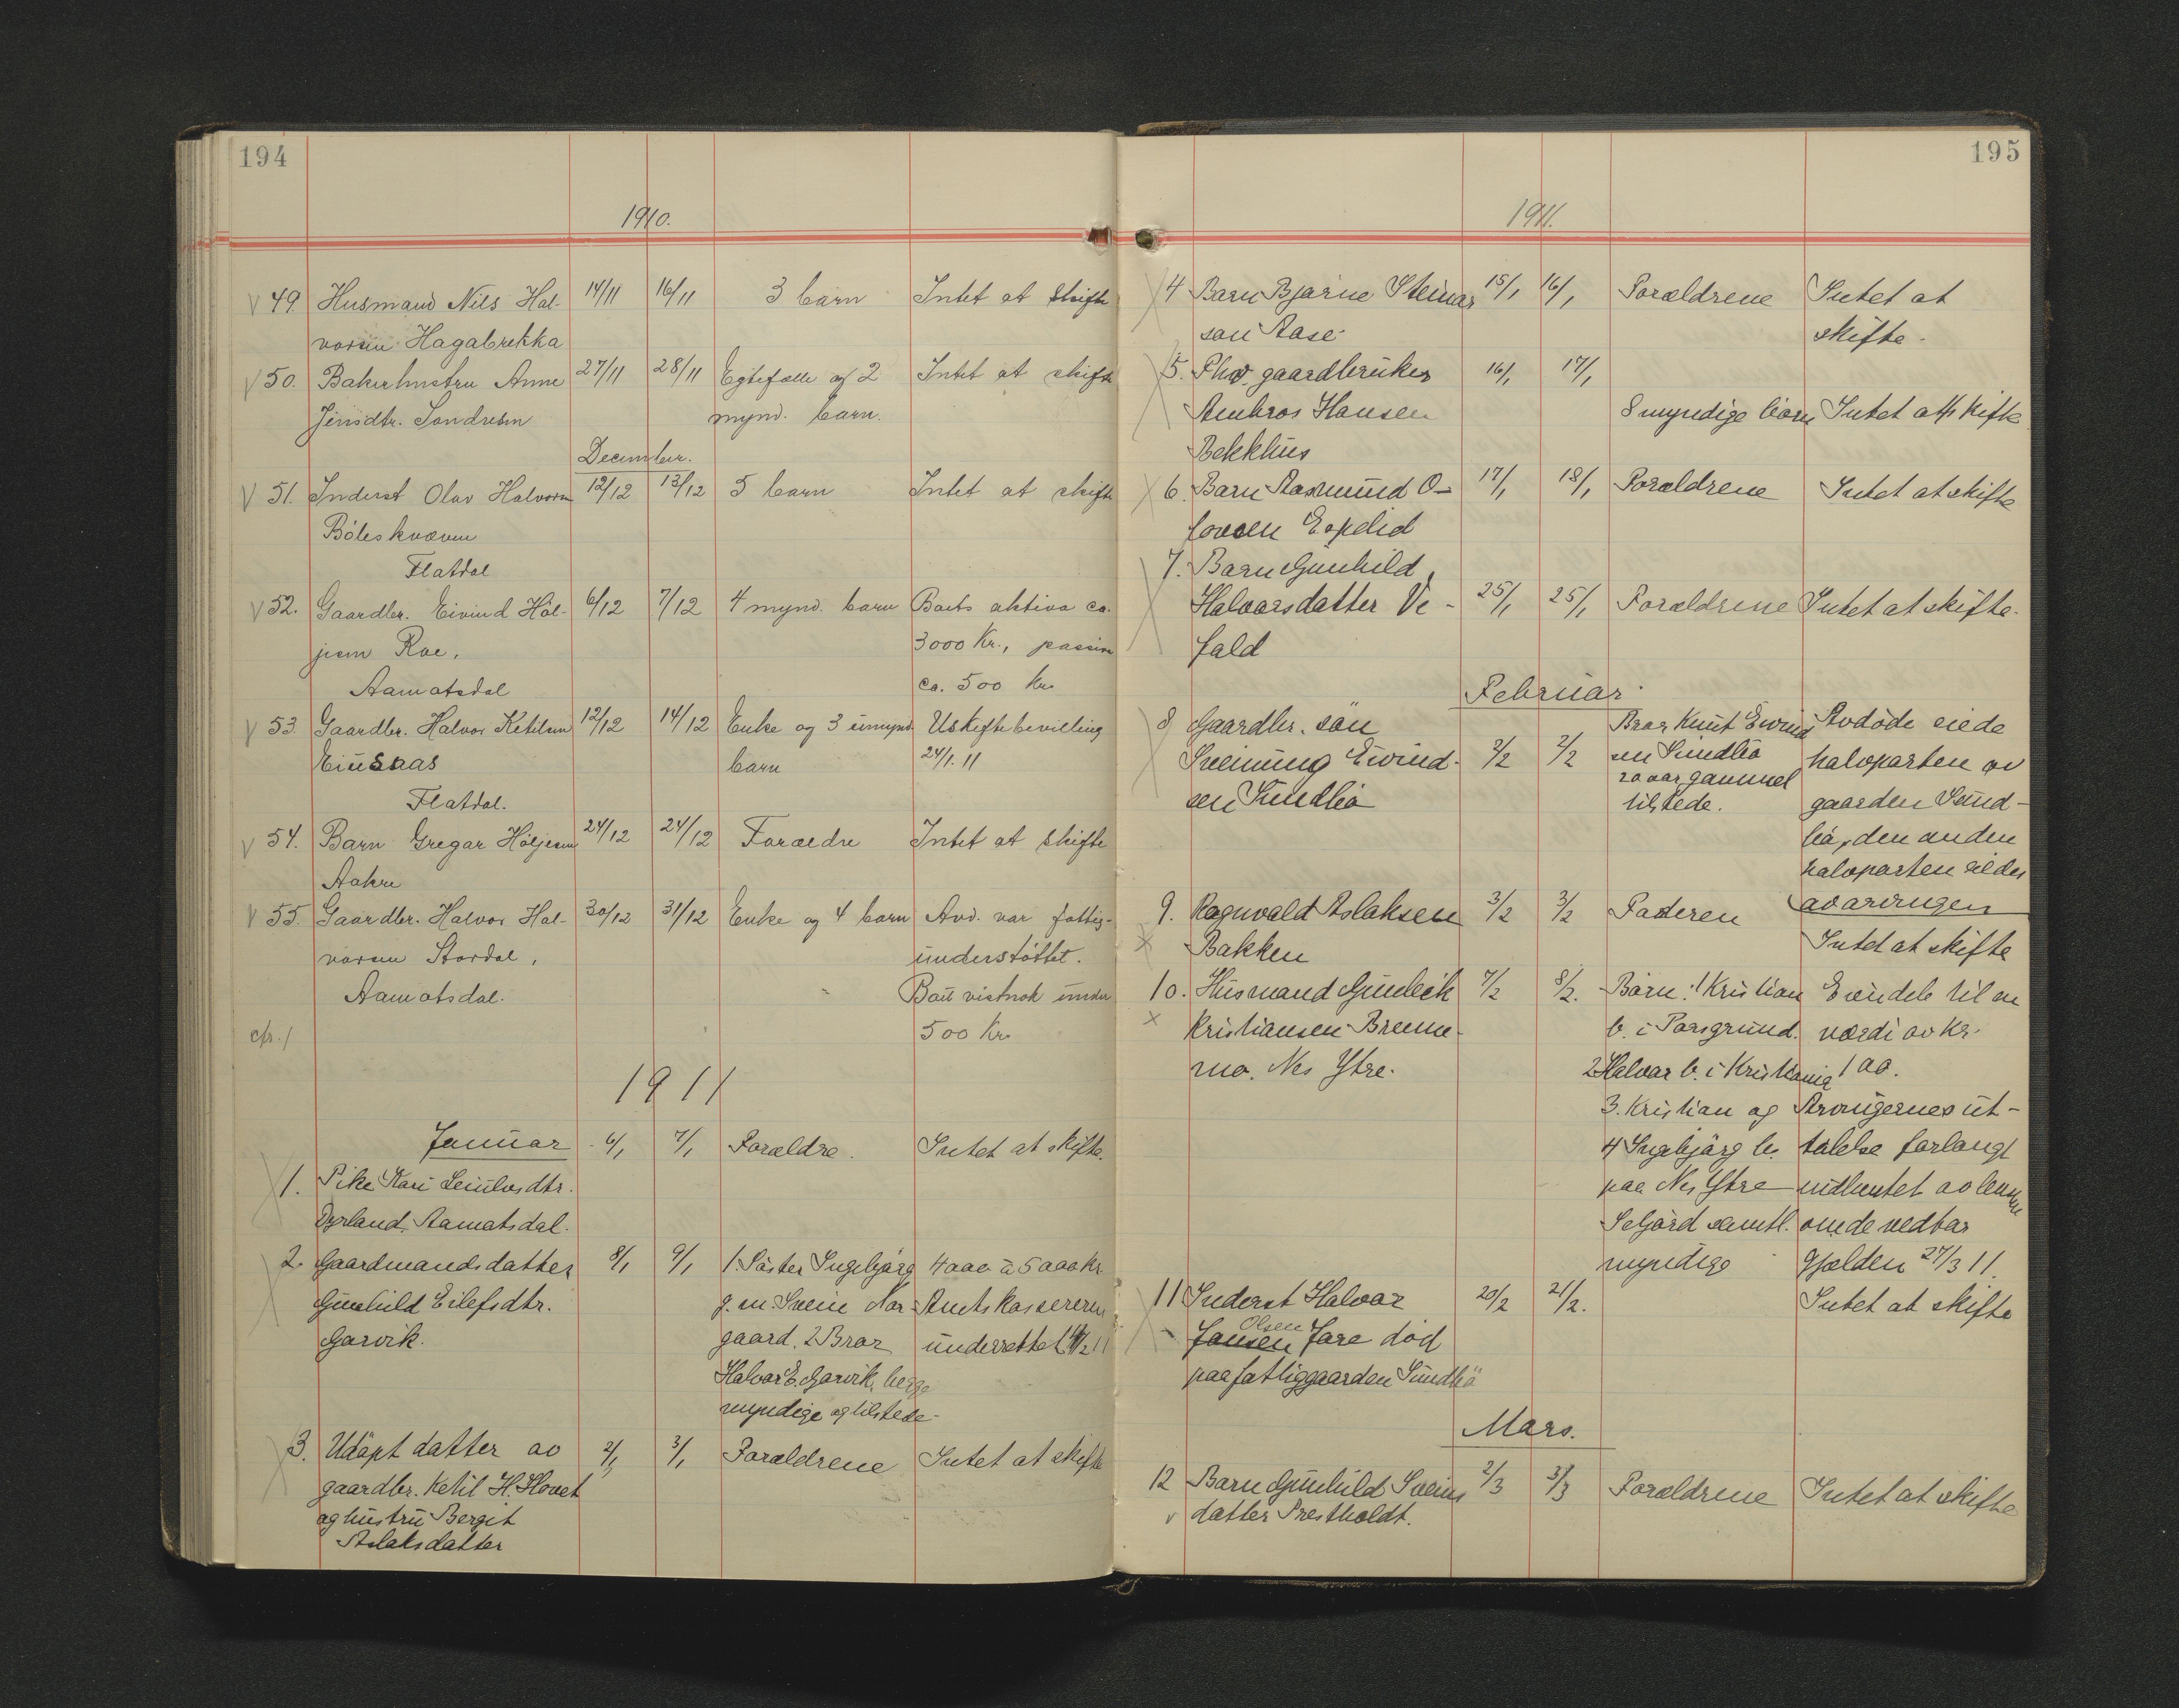 194
1910.
49. Husmand Nils Hal- 14/11 16/11 3 barn Intet at skifte
vorsen Hagabrekka
50. Bakerhustru Anne 27/11 28/11 Egtefælle og 2 Intet at skifte
Jensdtr. Sondresen mynd. barn.
December.
51. Inderst Olav Halvorsen 12/12 13/12 5 barn Intet at skifte
Böleskvæven
Flatdal
52. Gaardbr. Eivind Höl- 6/12 7/12 4 mynd. barn Boets aktiva ca.
jesen Roe, 3000 Kr., passiva
Aamotsdal ca. 500 Kr.
53. Gaardbr. Halvor Ketilsen 12/12 14/12 Enke og 3 umynd. Uskiftebevilling
barn 24/1.11
Flatdal.
54. Barn Gregar Höljesen 24/12 24/12 Forældre Intet at skifte
Aakre
55. Gaardbr. Halvor Hal- 30/12 31/12 Enke og 4 barn Avd. var fattig-
vorsen Stordal, understöttet.
Aamotsdal. Boet vistnok under
500 Kr.
cfr. 1
1911
Januar 6/1 7/1 Forældre. Intet at skifte.
1. Pike Kari Leiulvsdtr.
Dyrland, Aamotsdal.
2. Gaardmandsdatter 8/1 9/1 1. Söster Ingebjörg 4000 à 5000 Kr
Gunhild Eilefsdtr. g. m. Svein Nor- Amtskassereren
Garvik. gaard. 2 Bror underrettet
Halvor E. Garvik, begge
myndige og tilstede.
3. Udöpt datter av 2/1 3/1 Forældrene Intet at skifte
gaardbr. Ketil H. Hovet
og hustru Bergit
Aslaksdatter
195
1911.
4 Barn Bjarne Steinar 15/1 16/1 Forældrene Intet at
son Aase skifte.
5. Fhv. gaardbruker 16/1 17/1
Ambros Hansen 8 myndige börn Intet at skifte
Bekkhus
6. Barn Aasmund O- 17/1 18/1 Forældrene Intet at skifte
lovsen Espelid
7. Barn Gunhild
Halvorsdatter Ve- 25/1 25/1 Forældrene Intet at skifte.
fald
Februar
8 Gaardbr. sön Bror Knut Eivind Avdöde eiede
Sveinung Eivind- 2/2 2/2 sen Sundbö halvparten av
sen Sundbö 20 aar gammel gaarden Sund-
tilstede. bö, den anden
halvparten eides
9. Ragnvald Aslaksen 3/2 3/2 Faderen av arvingen
Bakken Intet at skifte
10. Husmand Gunleik 7/2 8/2. Börn: 1 Kristian Eiendele til en
Kristiansen Brenne- b. i Porsgrund. værdi av kr.
mo. Nes Ytre. 2 Halvor b. i Kristiania 100.
3. Kristian og Arvingernes ut-
4 Ingebjörg b. talelse forlangt
paa Nes Ytre indhentet av lensm
Seljord samtl. om de vedtar
myndige Gjælden 27/3 11.
11 Inderst Halvor 20/2 21/2. Intet at skifte
Olsen
Jansen Jare död
paa fattiggaarden Sundbö
Mars.
12 Barn Gunhild Sveins 2/3 3/3 Forældrene Intet at skifte
datter Prestholdt.